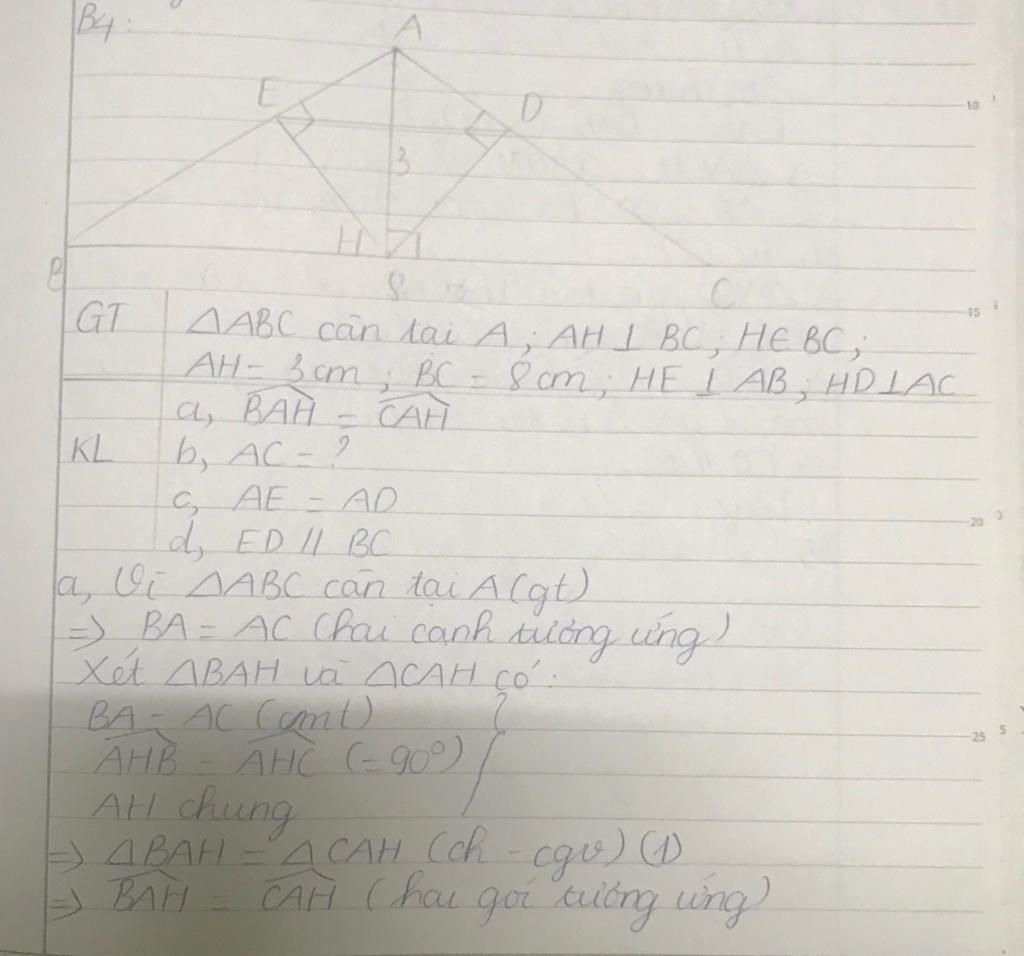 B4:
A
E
D
3
H
B
8
C
GT ΔABC cân tại A; AH ⊥ BC; H∈BC;
AH = 3cm; BC = 8cm; HE ⊥ AB; HD⊥AC
a, \widehat{BAH} = \widehat{CAH}
KL b, AC = ?
c, AE = AD
d, ED // BC
a, Vì ΔABC cân tại A (gt)
=> BA = AC (hai cạnh tương ứng)
Xét ΔBAH và ΔCAH có:
BA = AC (cmt)
\widehat{AHB} = \widehat{AHC} (= 90°)
AH chung
=> ΔBAH = ΔCAH (ch - cgv) (1)
=> \widehat{BAH} = \widehat{CAH} (hai goí tương ứng)
10
15
20
25
5